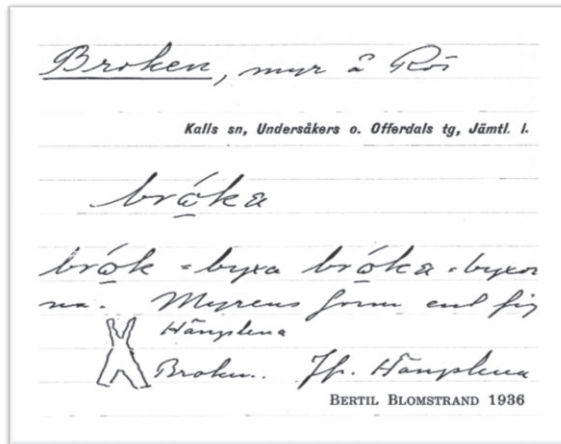 Broken, myr å
Kalls sn, Undersåkers o. Offerdals tg, Jämtl. l.
bró̱ka
bró̱k = byxa bró̱ka = byxor
na. Myrens form enl fig
Hängslena
Broken. Jfr. Hängslena
BERTIL BLOMSTRAND 1936